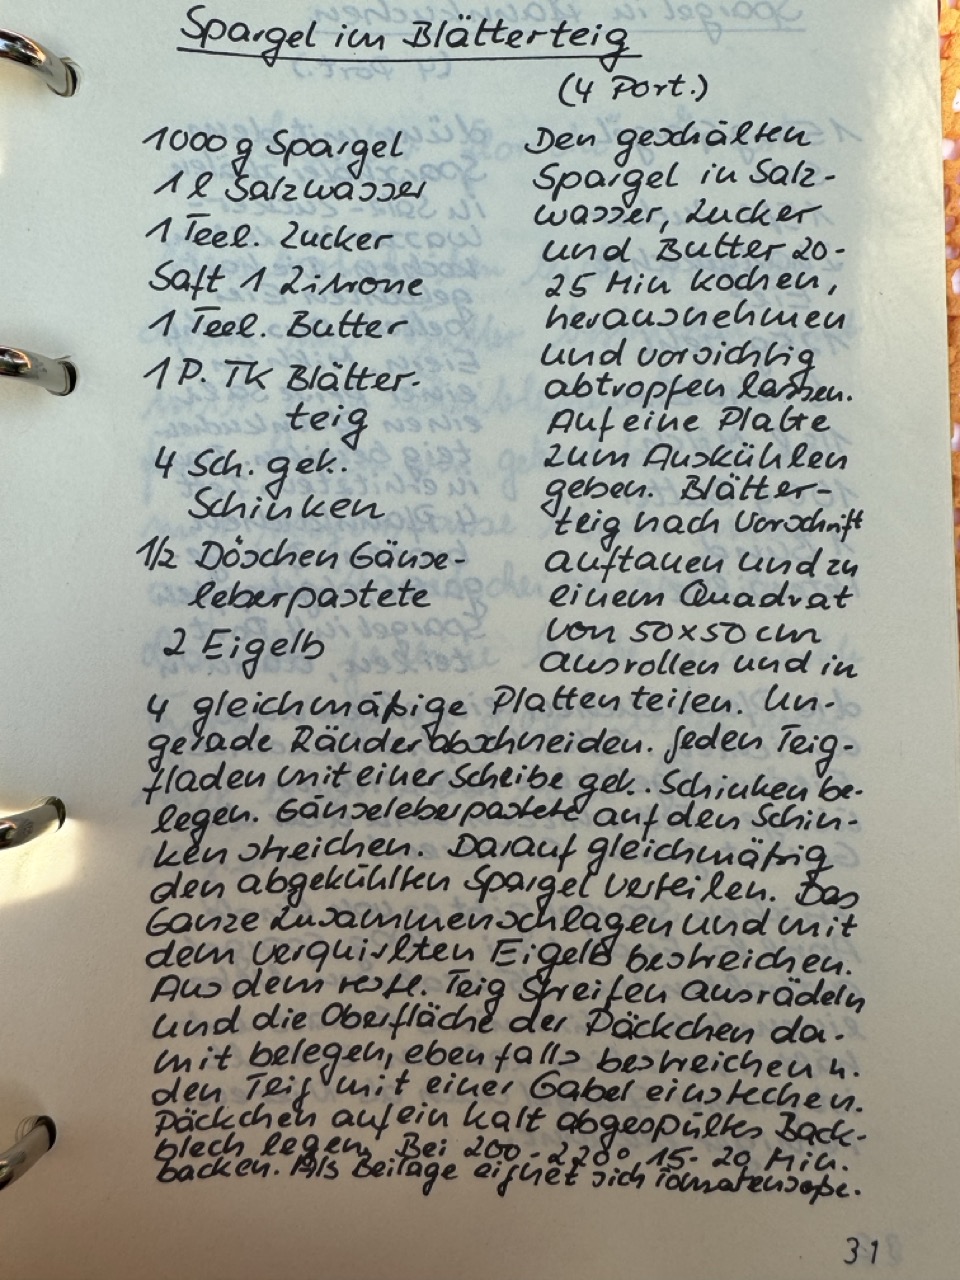 Spargel im Blätterteig
(4 Port.)
1000 g Spargel
1 l Salzwasser
1 Teel. Zucker
Saft 1 Zitrone
1 Teel. Butter
1 P. TK Blätter-
teig
4 Sch. gek.
Schinken
1/2 Döschen Gänse-
leberpastete
2 Eigelb
Den geschälten
Spargel in Salz-
wasser, Zucker
und Butter 20-
25 Min kochen,
herausnehmen
und vorsichtig
abtropfen lassen.
Auf eine Platte
zum Auskühlen
geben. Blätter-
teig nach Vorschrift
auftauen und zu
einem Quadrat
von 50x50 cm
ausrollen und in
4 gleichmäßige Platten teilen. Un-
gerade Ränder abschneiden. Jeden Teig-
fladen mit einer Scheibe gek. Schinken be-
legen. Gänseleberpastete auf den Schin-
ken streichen. Darauf gleichmäßig
den abgekühlten Spargel verteilen. Das
Ganze zusammenschlagen und mit
dem verquirlten Eigelb bestreichen.
Aus dem restl. Teig Streifen ausrädeln
und die Oberfläche der Päckchen da-
mit belegen, ebenfalls bestreichen u.
den Teig mit einer Gabel einstechen.
Päckchen auf ein kalt abgespültes Back-
blech legen. Bei 200-220° 15-20 Min.
backen. Als Beilage eignet sich Tomatensoße.
31